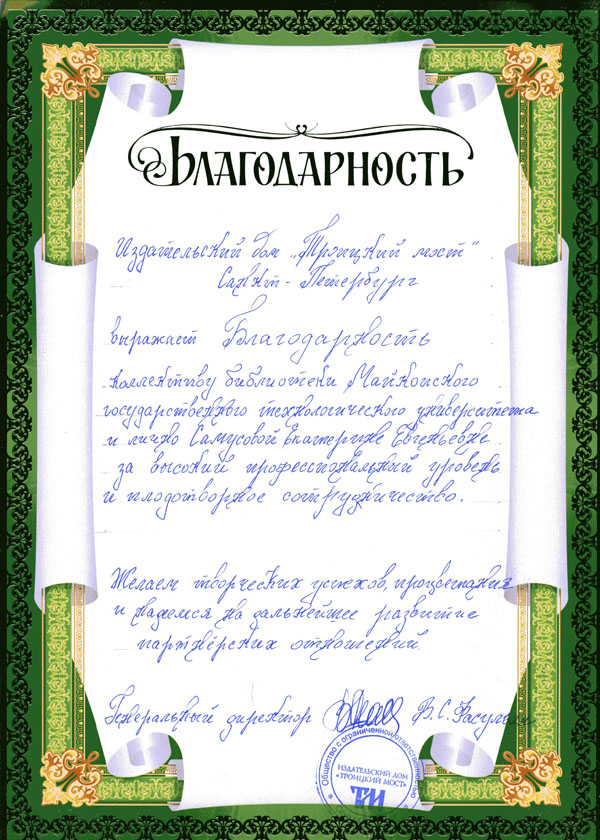 Благодарность
Издательский дом „Троицкий мост"
Санкт-Петербург
выражает Благодарность
коллективу библиотеки Майкопского
государственного технологического университета
и лично Самусовой Екатерине Евгеньевне
за высокий профессиональный уровень
и плодотворное сотрудничество.
Желаем творческих успехов, процветания
и надеемся на дальнейшее развитие
партнёрских отношений.
Генеральный директор В.С.
Общество с ограниченной ответственностью
ИЗДАТЕЛЬСКИЙ ДОМ
«ТРОИЦКИЙ МОСТ»
ТМ